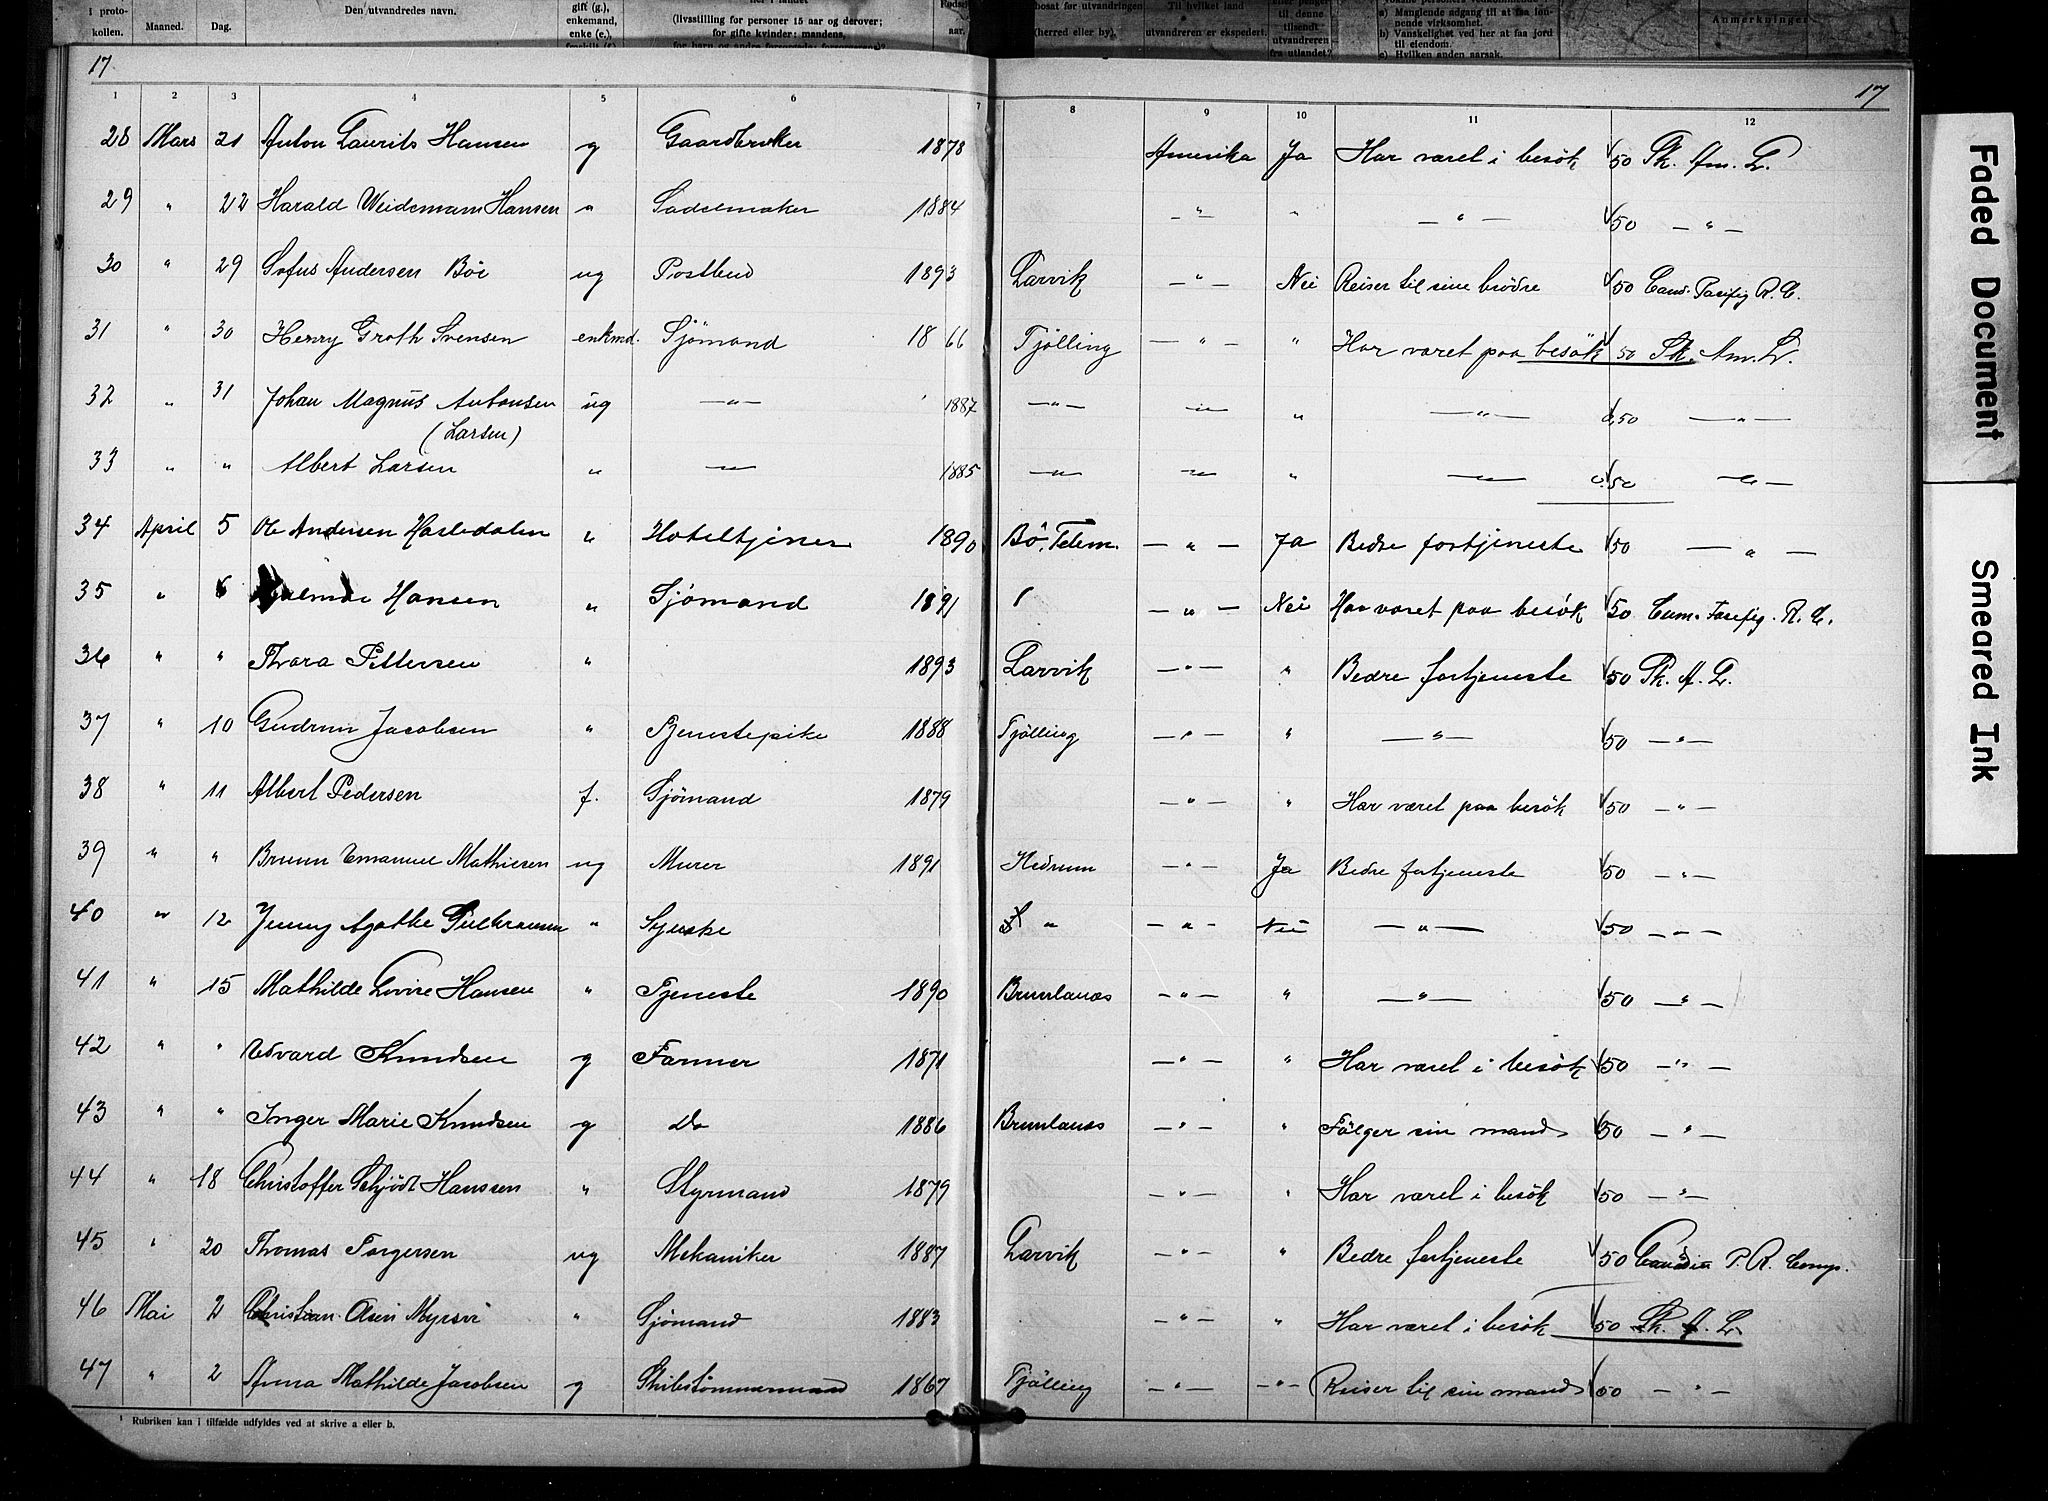 I proto-
kollen. Maaned. Dag. Den utvandredes navn. gift (g.), enkemand, enke (e.), (livsstilling for personer 15 aar og derover; for gifte kvinder: mandens, aar. bosat før utvandringen (herred eller by). Til hvilket land utvandreren er ekspedert. til denne tilsendt utvandreren fra utlandet? a) Manglende adgang til at faa lønnende virksomhet. b) Vanskelighet ved her at faa jord til eiendom. c) Hvilken anden aarsak. Anmerkninger.
17 17
1 2 3 4 5 6 7 8 9 10 11 12
28 Mars 21 Anton Laurits Hansen g Gaardbruker 1878 Amerika Ja Har været i besök 50 Sk. Am. L.
29 " 22 Harald Weidemann Hansen " Sadelmaker 1884 —"— " —"— 50 —"—
30 " 29 Sofus Andersen Böe ug Postbud 1893 Larvik —"— Nei Reiser til sine brödre 50 Can. Pasifig R. C.
31 " 30 Henry Groth Svensen enkmd. Sjömand 1866 Tjölling —"— " Har været paa besök 50 Sk. Am. L.
32 " 31 Johan Magnus Antonsen ug —"— 1887 —"— —"— " —"— 0,50 —"—
(Larsen)
33 " " Albert Larsen " —"— 1885 —"— —"— " —"— 0.50 —"—
34 April 5 Ole Andersen Hasledalen " Hoteltjener 1890 Bö, Telem. —"— Ja Bedre fortjeneste 50 —"—
35 " 6 Hansen " Sjömand 1891 —"— Nei Har været paa besök 50 Can. Pasifig. R. C.
36 " " Thora Pettersen " 1893 Larvik —"— " Bedre fortjeneste 50 Sk. A. L.
37 " 10 Gudrun Jacobsen " Tjenestepike 1888 Tjölling —"— " —"— 50 —"—
38 " 11 Albert Pedersen f. Sjömand 1879 —"— " Har været paa besök 50 —"—
39 " " Brunn Emanuel Mathiesen ug Murer 1891 Hedrum —"— Ja Bedre fortjeneste 50 —"—
40 " 12 Jenny Agathe " Syerske " —"— Nei —"— 50 —"—
41 " 15 Mathilde Lovise Hansen " Tjeneste 1890 Brunlanæs —"— " —"— 50 —"—
42 " " Edvard Knudsen g Farmer 1871 —"— " Har været i besök 50 —"—
43 " " Inger Marie Knudsen g Do 1886 Brunlanæs —"— " Fölger sin mand 50 —"—
44 " 18 Christoffer Schjödt Hanssen " Styrmand 1879 —"— " Har været i besök 50 —"—
45 " 20 Thomas Torgersen ug Mekaniker 1887 Larvik —"— " Bedre fortjeneste 50 P. R. Comp.
46 Mai 2 Christian Olsen Myrsve " Sjömand 1883 —"— " Har været i besök 50 Sk. A. L.
47 " 2 Anna Mathilde Jacobsen g Skibstömmermand 1867 Tjölling —"— —"— Reiser til sin mand 50 —"—
¹ Rubriken kan i tilfælde udfyldes ved at skrive a eller b.
Faded Document
Smeared Ink